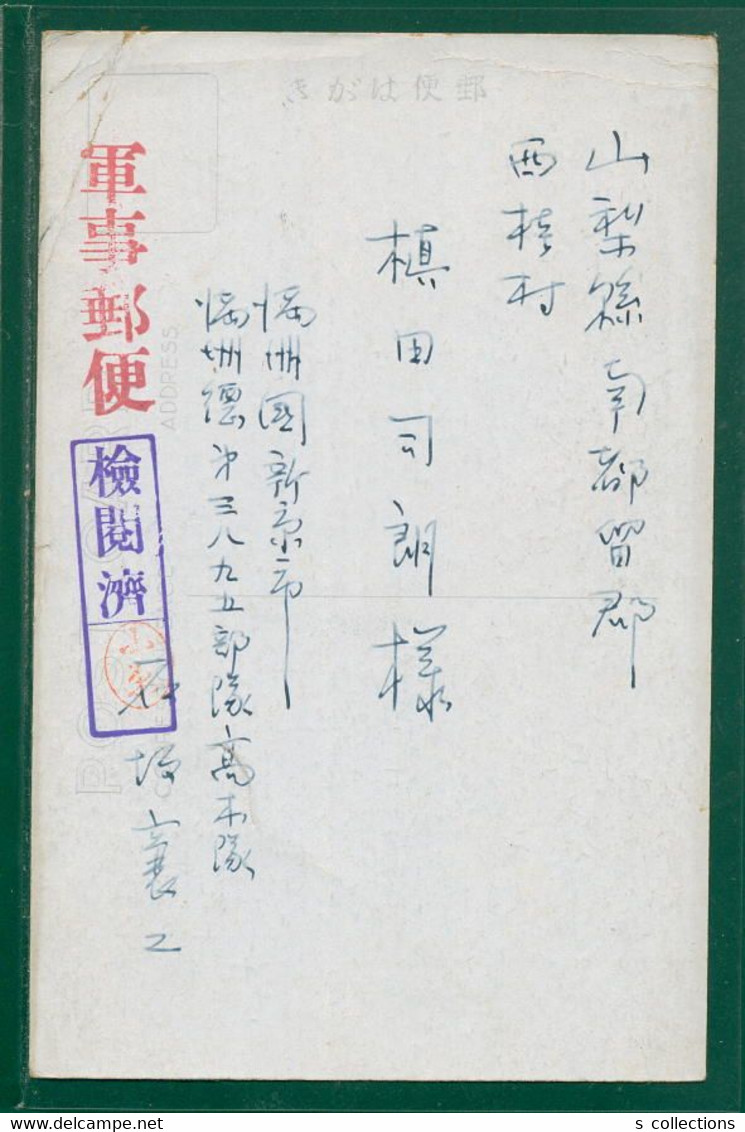 郵便はがき
山梨縣南都留郡
西桂村
槙田司朗様
満洲國新京市
満洲德第三八九五部隊高木隊
石塚襄二
軍事郵便
檢閲濟
POST CARD
ADDRESS
s collections